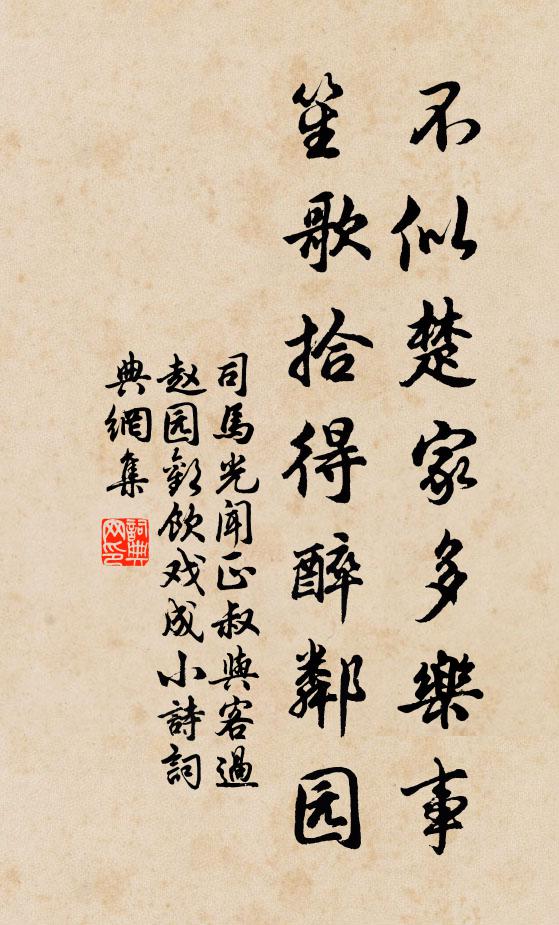 不似楚家多樂事
笙歌拾得醉鄰园
司馬光闻正叔與客過
赵园歡飲戏成小詩詞
典網集
詞典网印